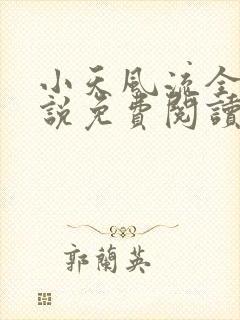 小天風流全
說免費閱讀
郭蘭英